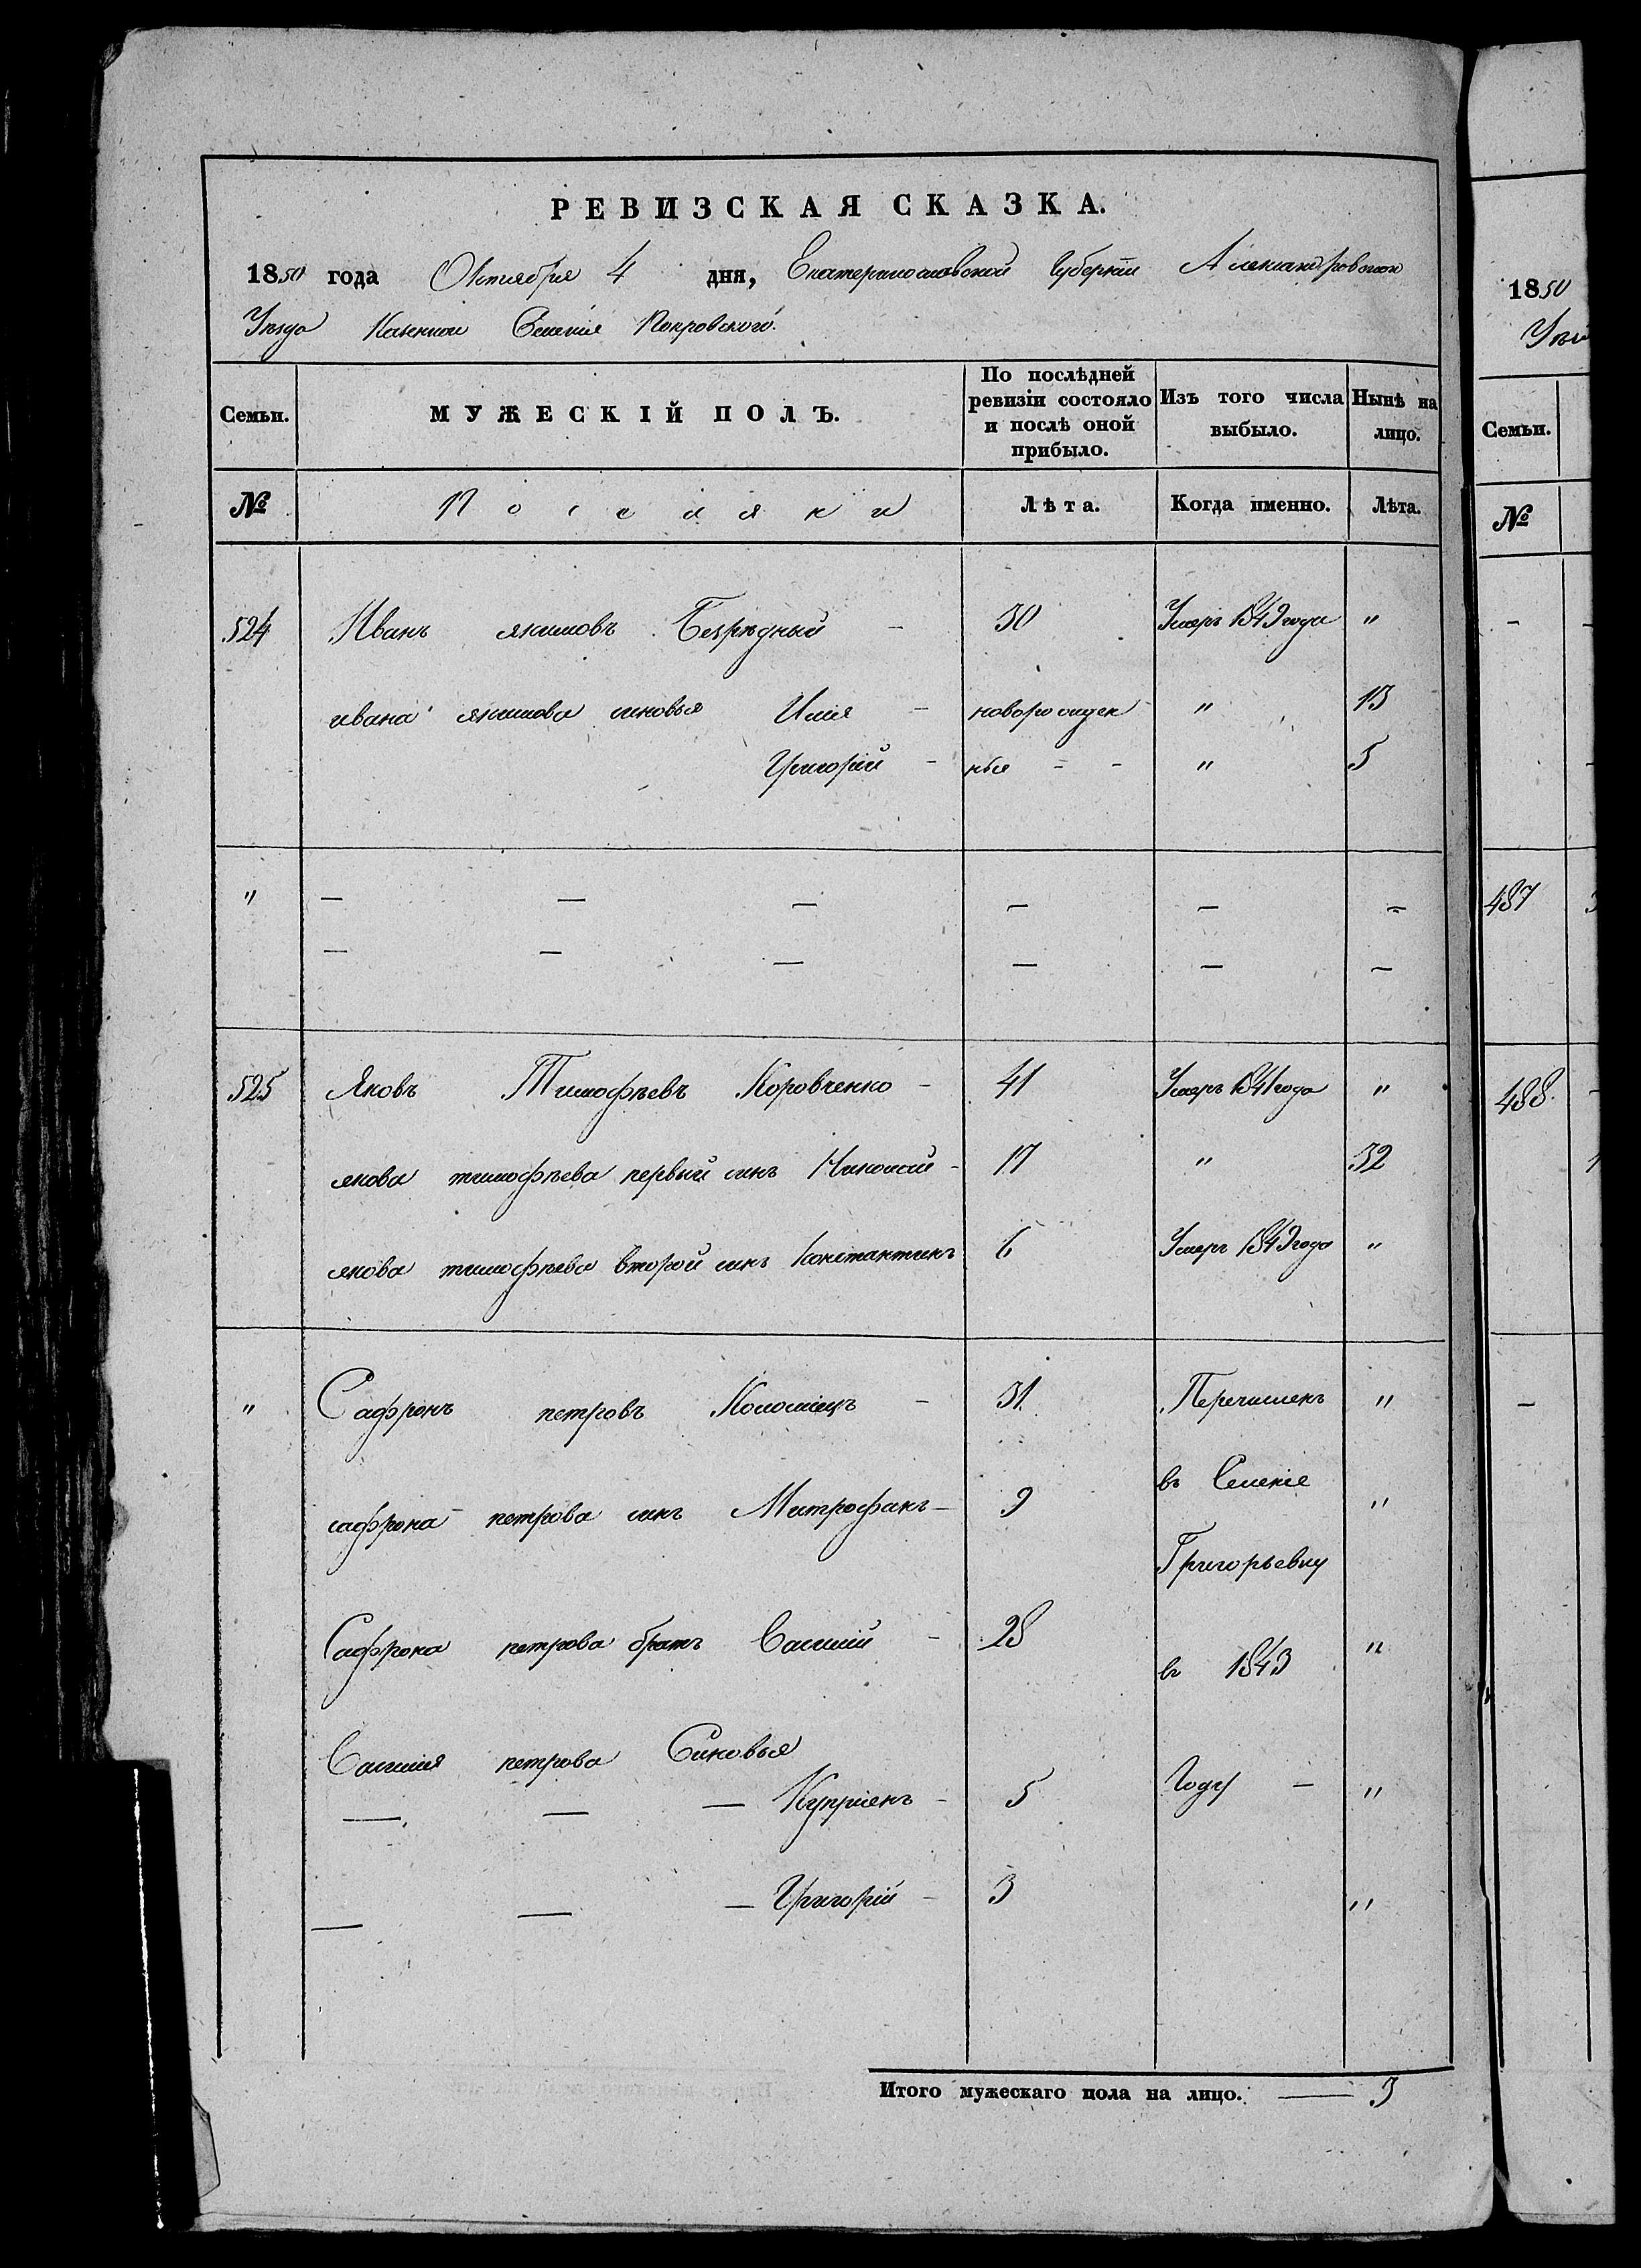 РЕВИЗСКАЯ СКАЗКА.
1850 года Октября 4 дня, Екатеринославской Губерніи Александровского
Уѣзда Казенного Селенія Покровского.
Семьи. МУЖЕСКІЙ ПОЛЪ. По послѣдней ревизіи состояло и послѣ оной прибыло. Изъ того числа выбыло. Нынѣ на лицо.
№ Поселяки Лѣта. Когда именно. Лѣта.
524 Иванъ якимовъ Безрѣдный - 30 Умеръ 1849 года "
ивана якимова сыновья Илія - новорожден " 13
Григорій - ныя - - " 5
" — — — — — —
— — — — — —
525 Яковъ Тимофѣевъ Коровченко - 41 Умеръ 1841 года "
якова тимофѣева первый сынъ Николай - 17 " 32
якова тимофѣева второй сынъ Константинъ 6 Умеръ 1849 года "
" Сафронъ петровъ Коломіецъ - 31 Перечисленъ "
сафрона петрова сынъ Митрофанъ - 9 въ Селеніе "
Григорьевку
Сафрона петрова братъ Василій - 28 въ 1843 "
Василія петрова Сыновья
— — — Купріянъ - 5 Году - "
— — — Григорій - 3 "
Итого мужескаго пола на лицо. — 3
1850
Семьи.
№
-
487
488.
-